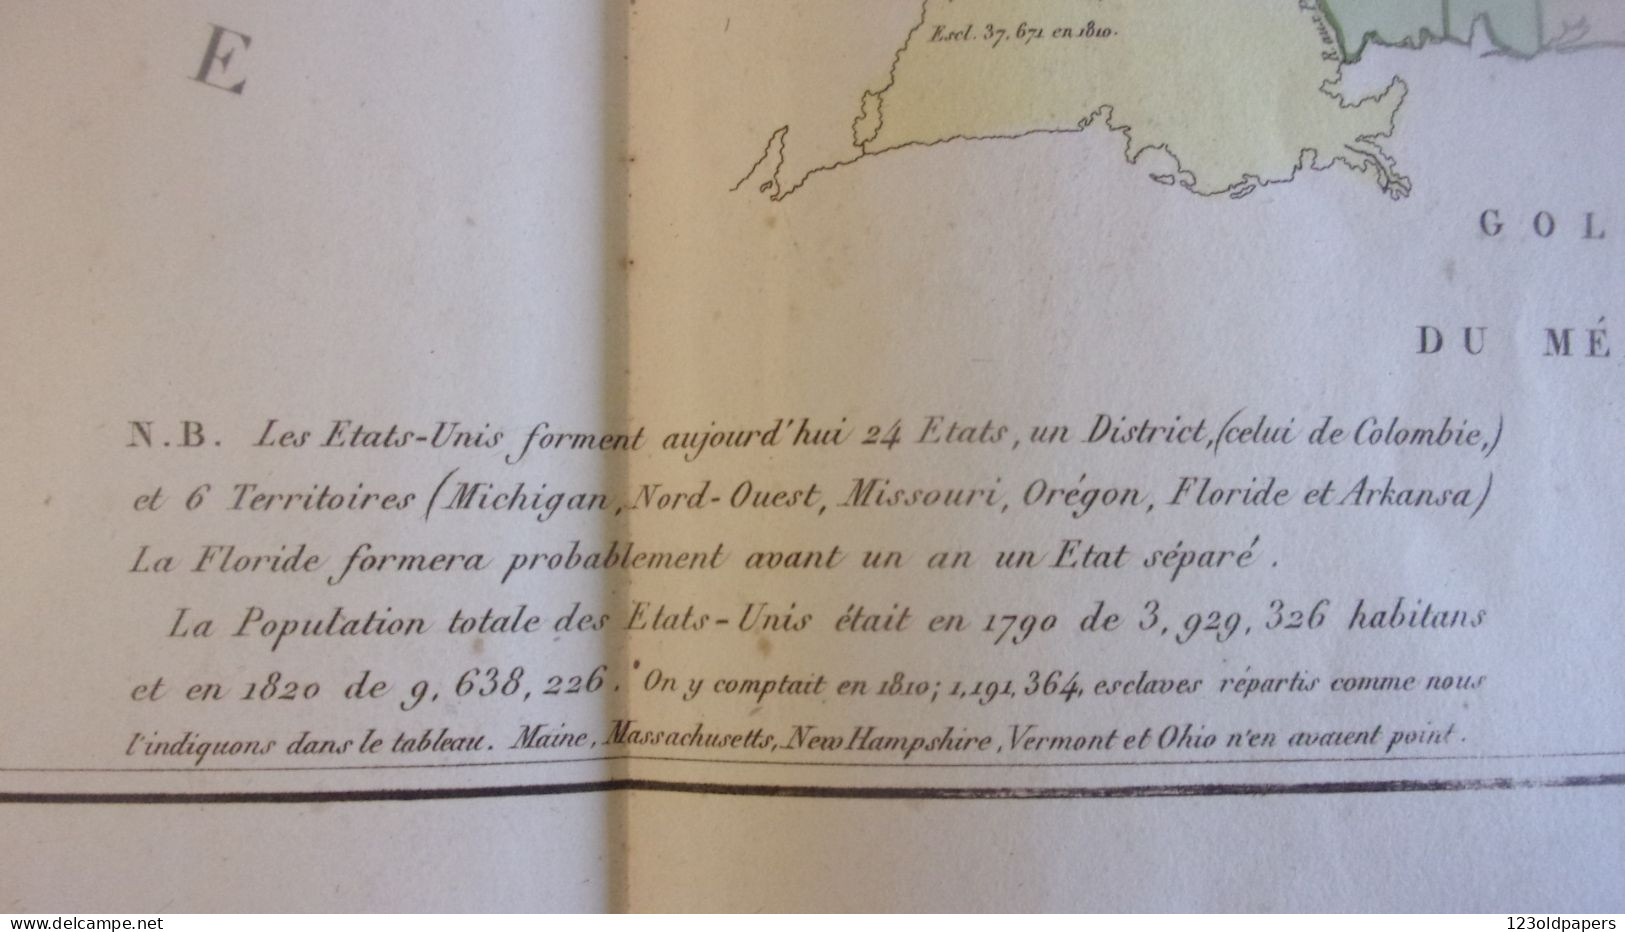 E
Escl. 37,671 en 1810.
GOL
DU MÉ
N.B. Les Etats-Unis forment aujourd'hui 24 Etats, un District, (celui de Colombie,)
et 6 Territoires (Michigan, Nord-Ouest, Missouri, Orégon, Floride et Arkansa)
La Floride formera probablement avant un an un Etat séparé.
La Population totale des Etats-Unis était en 1790 de 3,929,326 habitans
et en 1820 de 9,638,226. On y comptait en 1810; 1,191,364, esclaves répartis comme nous
l'indiquons dans le tableau. Maine, Massachusetts, New Hampshire, Vermont et Ohio n'en avaient point.
delcampe.net
123oldpapers